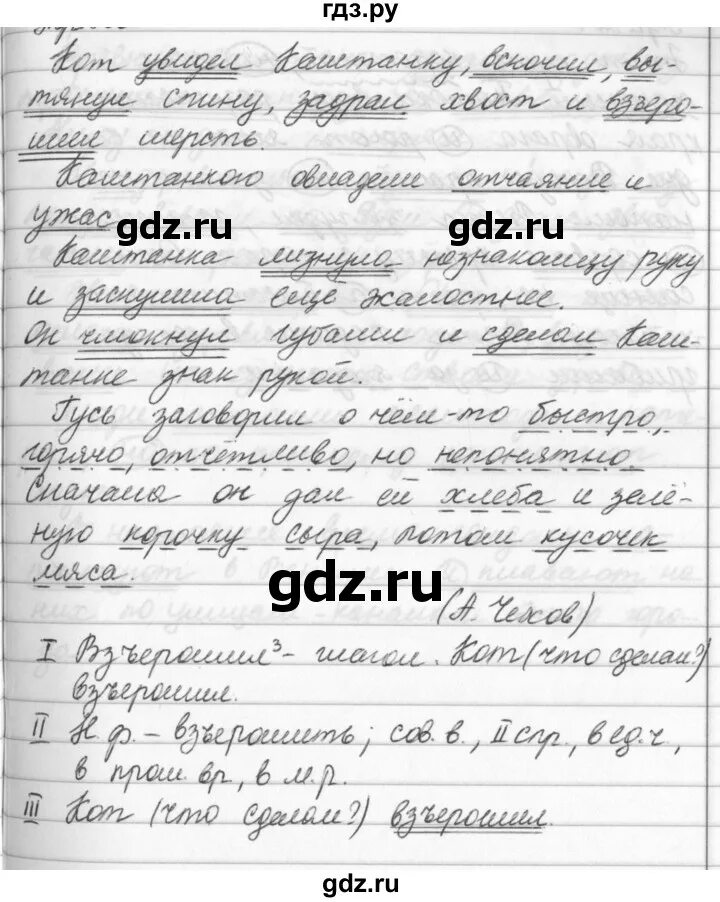 гдз.ру
Кот увидел Каштанку, вскочил, вы-
тянул спину, задрал хвост и взъеро-
шил шерсть.
Каштанкою овладели отчаяние и
ужас
gdz.ru gdz.ru
Каштанка лизнула незнакомцу руку
и заскулила ещё жалостнее.
Он чмокнул губами и сделал Каш-
танке знак рукой.
Гусь заговорил о чём-то быстро,
горячо, отчётливо, но непонятно
Сначала он дал ей хлеба и зелё-
ную корочку сыра, потом кусочек
мяса.
gdz.ru
(А. Чехов)
I Взъерошил³ - глагол. Кот (что сделал?)
взъерошил.
II Н.ф. - взъерошить; сов.в., II спр., в ед.ч,
в прош. вр, в м.р.
III Кот (что сделал?) взъерошил.
gdz.ru